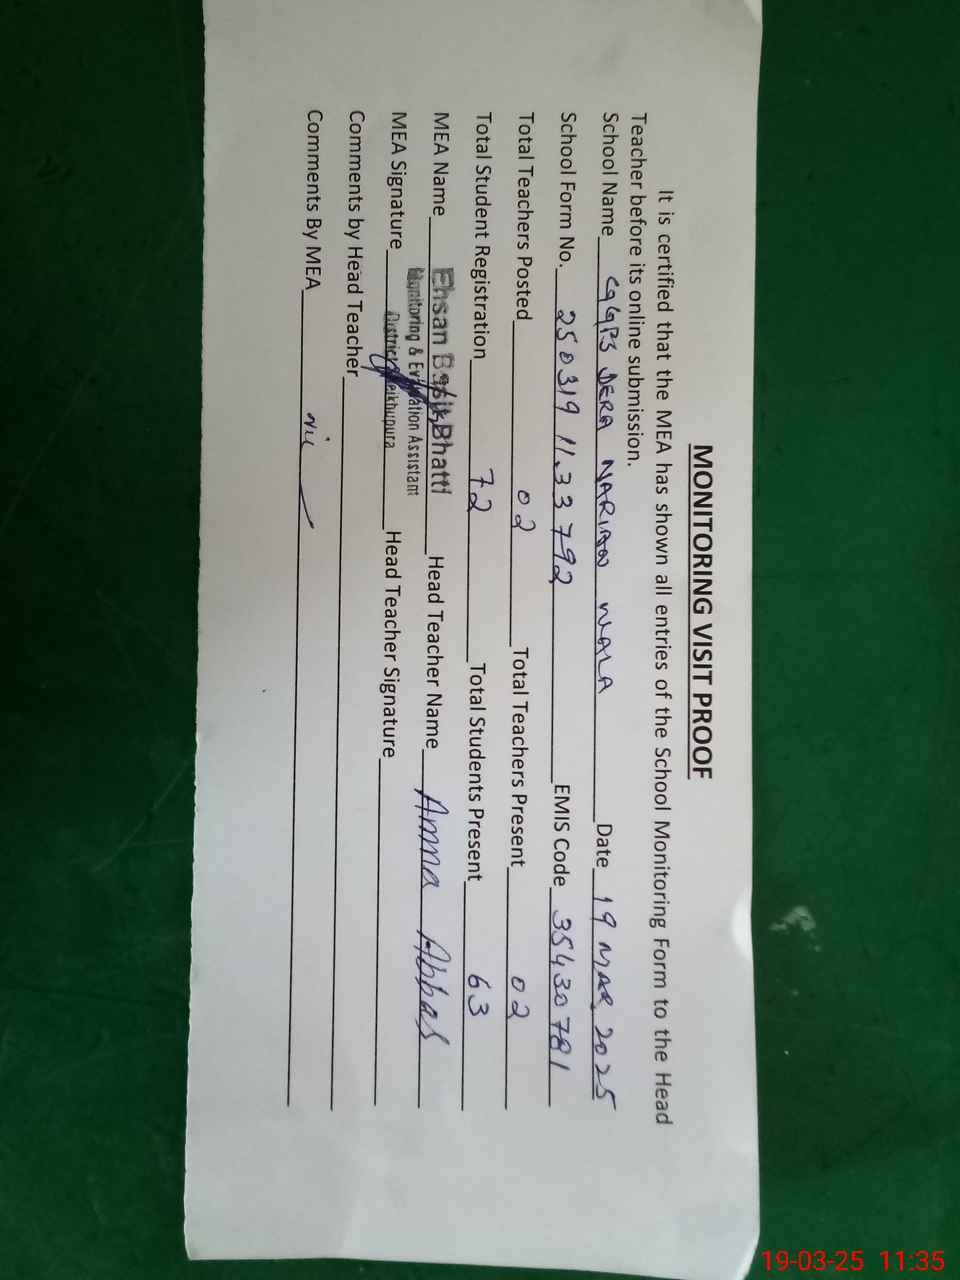 MONITORING VISIT PROOF
It is certified that the MEA has shown all entries of the School Monitoring Form to the Head
Teacher before its online submission.
School Name GGPS DERA NARIAN WALA Date 19 MAR 2025
School Form No. 250319 11.33 792 EMIS Code 35430781
Total Teachers Posted 02 Total Teachers Present 02
Total Student Registration 72 Total Students Present 63
MEA Name Ehsan Bhatti Head Teacher Name Amna Abbas
Monitoring & Evaluation Assistant
MEA Signature District Sheikhupura Head Teacher Signature
Comments by Head Teacher
Comments By MEA Nil
19-03-25 11:35